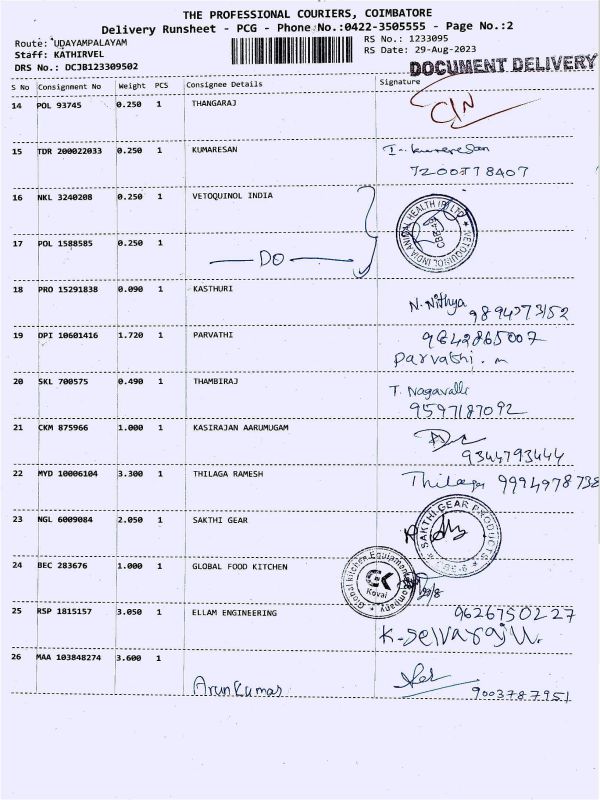 THE PROFESSIONAL COURIERS, COIMBATORE
Delivery Runsheet - PCG - Phone No.:0422-3505555 - Page No.:2
Route: UDAYAMPALAYAM
RS No.: 1233095
Staff: KATHIRVEL
RS Date: 29-Aug-2023
DRS No.: DCJB123309502
DOCUMENT DELIVERY
S No Consignment No Weight PCS Consignee Details Signature
14 POL 93745 0.250 1 THANGARAJ
15 TDR 200022033 0.250 1 KUMARESAN I. kumaresan
7200778407
16 NKL 3240208 0.250 1 VETOQUINOL INDIA
VETOQUINOL INDIA ANIMAL HEALTH (P) LTD
17 POL 1588585 0.250 1
DO
18 PRO 15291838 0.090 1 KASTHURI
N. Nithya 9894373152
19 DPI 10601416 1.720 1 PARVATHI 9842865007
Parvathi . m
20 SKL 700575 0.490 1 THAMBIRAJ T. Nagavalli
9597187092
21 CKM 875966 1.000 1 KASIRAJAN AARUMUGAM
9344793444
22 MYD 10006104 3.300 1 THILAGA RAMESH Thilaga 9994978738
23 NGL 6009084 2.050 1 SAKTHI GEAR
SAKTHI GEAR PRODUCTS
24 BEC 283676 1.000 1 GLOBAL FOOD KITCHEN
Global kitchen Equipment Company
Kovai
25 RSP 1815157 3.050 1 ELLAM ENGINEERING 9626750227
K. Selvaraj
26 MAA 103848274 3.600 1
Arunkumar 9003787951